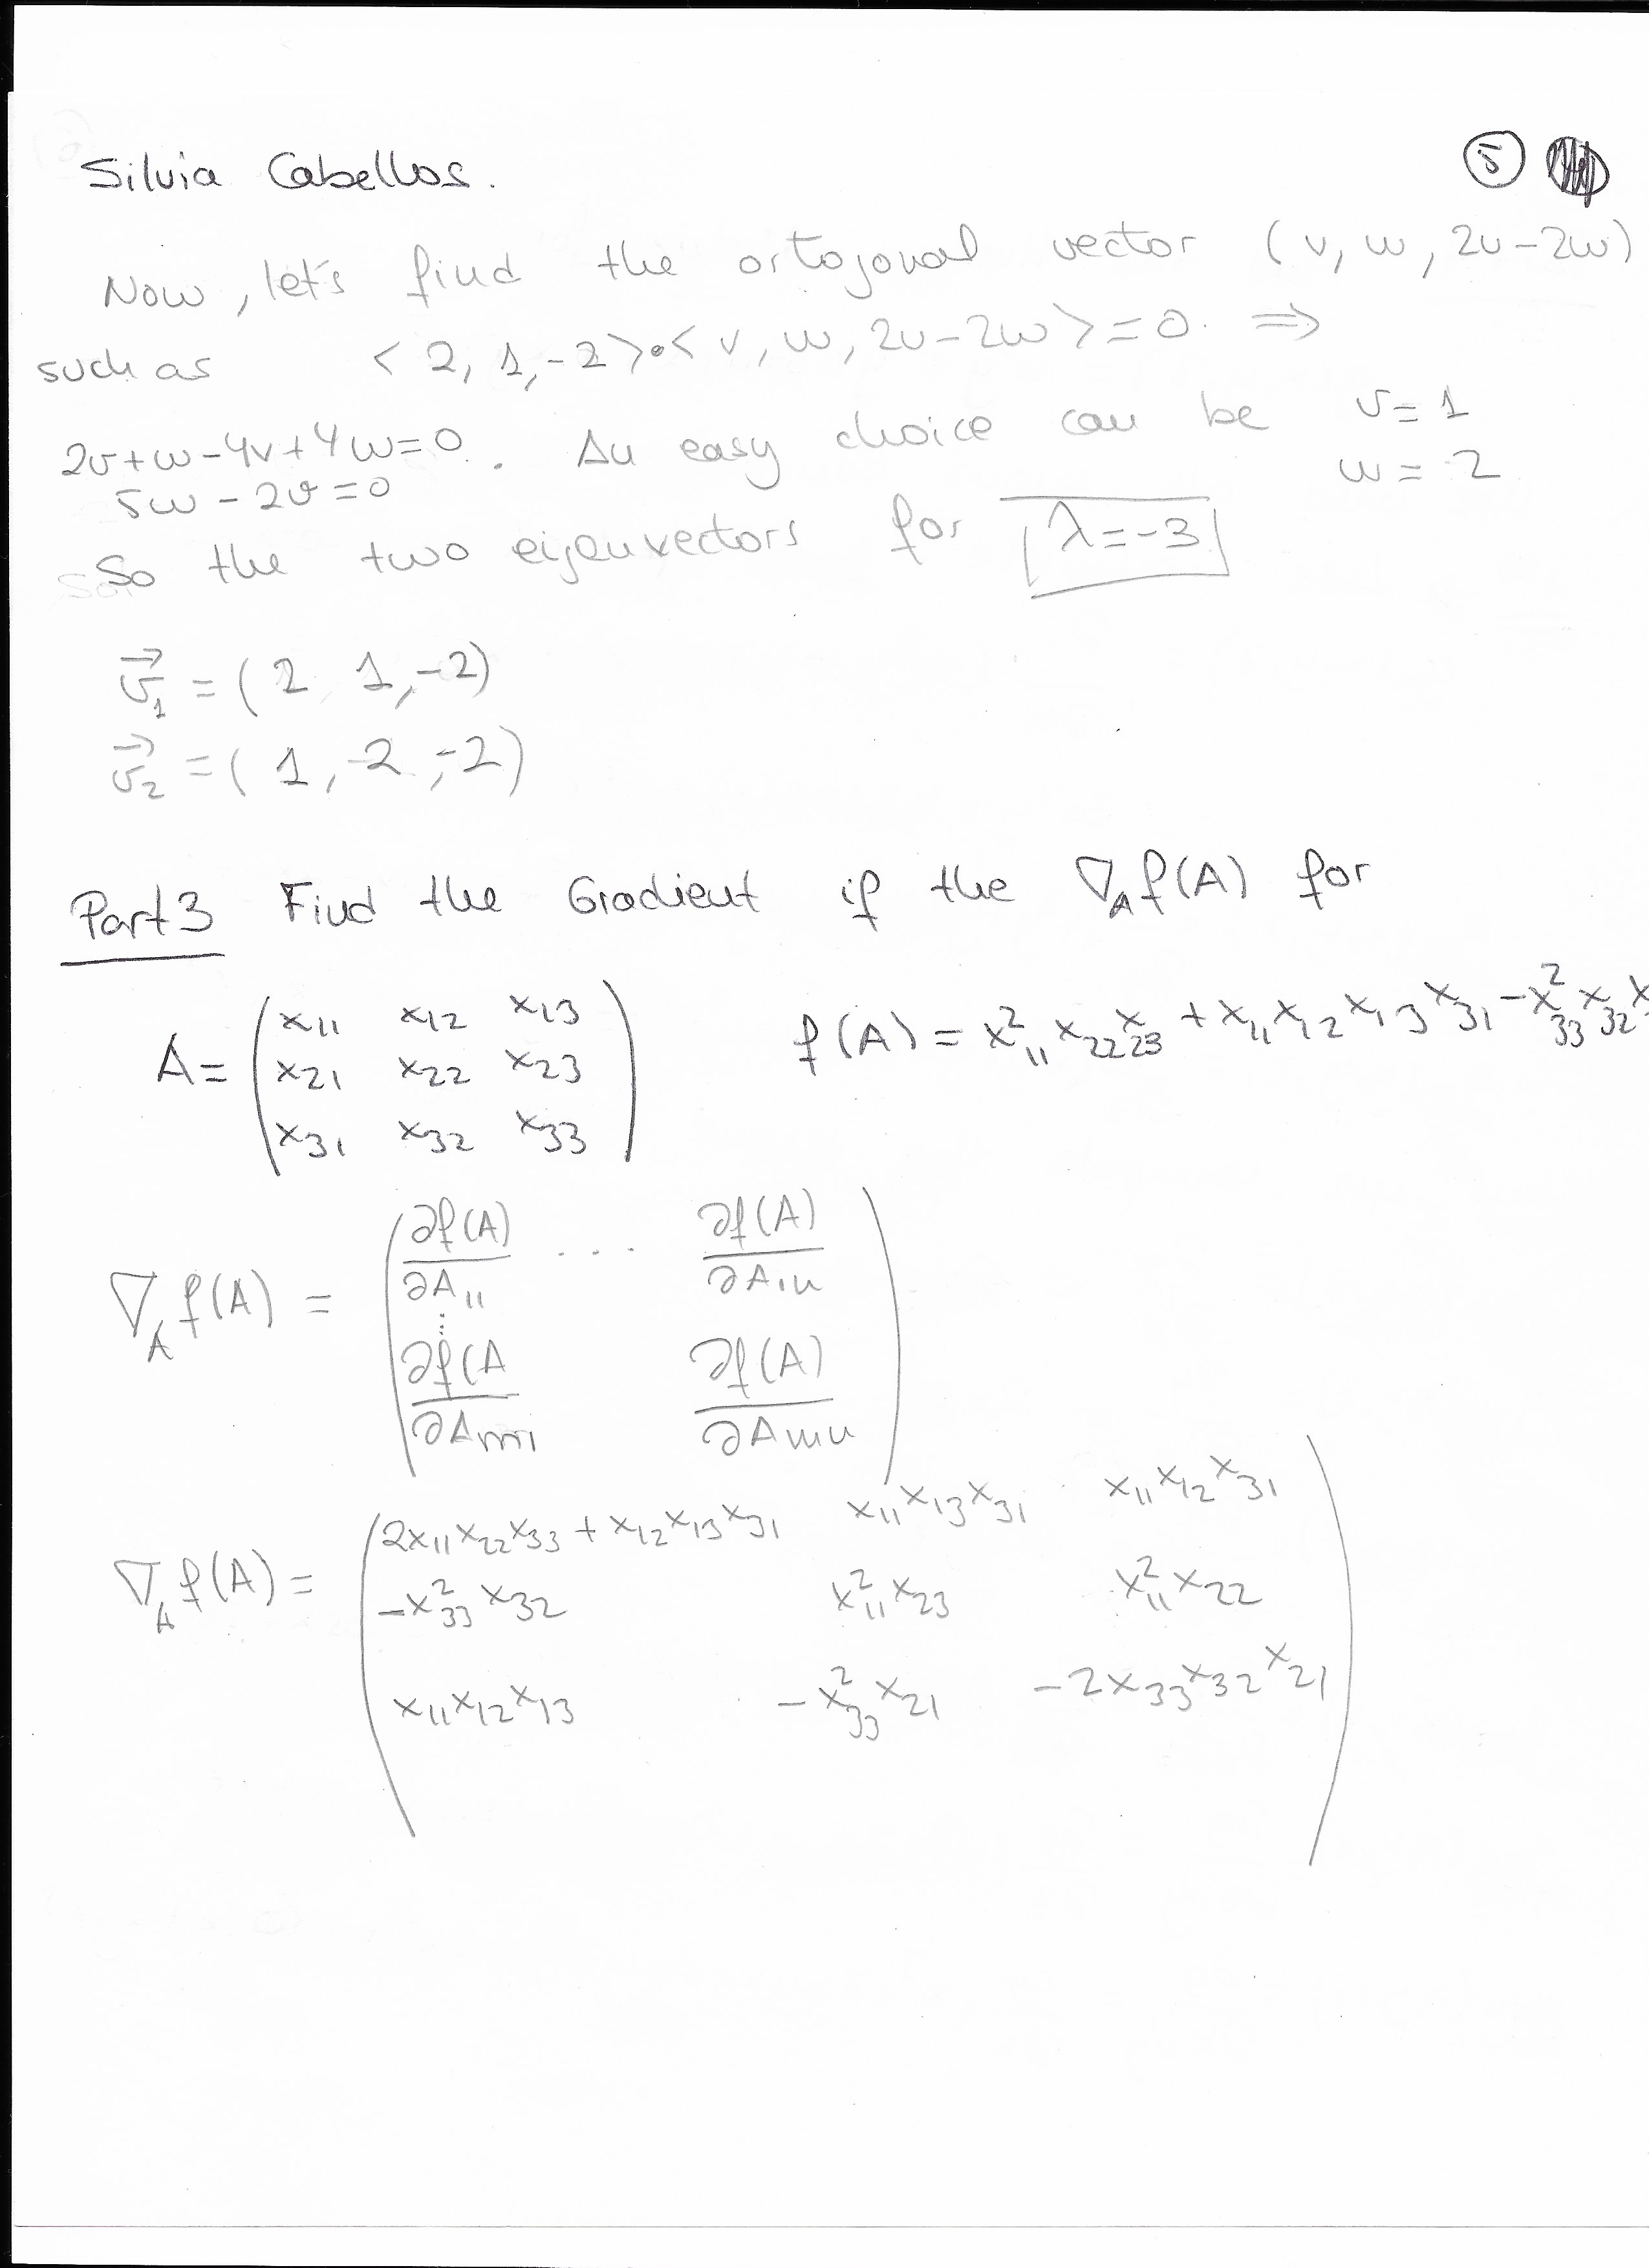 Silvia Cabellos.
5
Now, let's find the ortogonal vector (v, w, 2v-2w)
such as <2, 1, -2>•<v, w, 2v-2w>=0. ⇒
2v+w-4v+4w=0. An easy choice can be v=1
5w-2v=0 w=-2
So the two eigenvectors for λ=-3
v⃗₁=(2 1,-2)
v⃗₂=(1,-2,-2)
Part3 Find the Gradient if the ∇_A f(A) for
A= (x₁₁ x₁₂ x₁₃
x₂₁ x₂₂ x₂₃
x₃₁ x₃₂ x₃₃) f(A)= x²₁₁x₂₂x₂₃+x₁₁x₁₂x₁₃x₃₁-x²₃₃x₃₂x
∇_A f(A) = (∂f(A)/∂A₁₁ ... ∂f(A)/∂A₁ₙ
⋮
∂f(A/∂Aₘ₁ ∂f(A)/∂Aₘₙ)
∇_A f(A)= (2x₁₁x₂₂x₃₃+x₁₂x₁₃x₃₁ x₁₁x₁₃x₃₁ x₁₁x₁₂x₃₁
-x²₃₃x₃₂ x²₁₁x₂₃ x²₁₁x₂₂
x₁₁x₁₂x₁₃ -x²₃₃x₂₁ -2x₃₃x₃₂x₂₁)